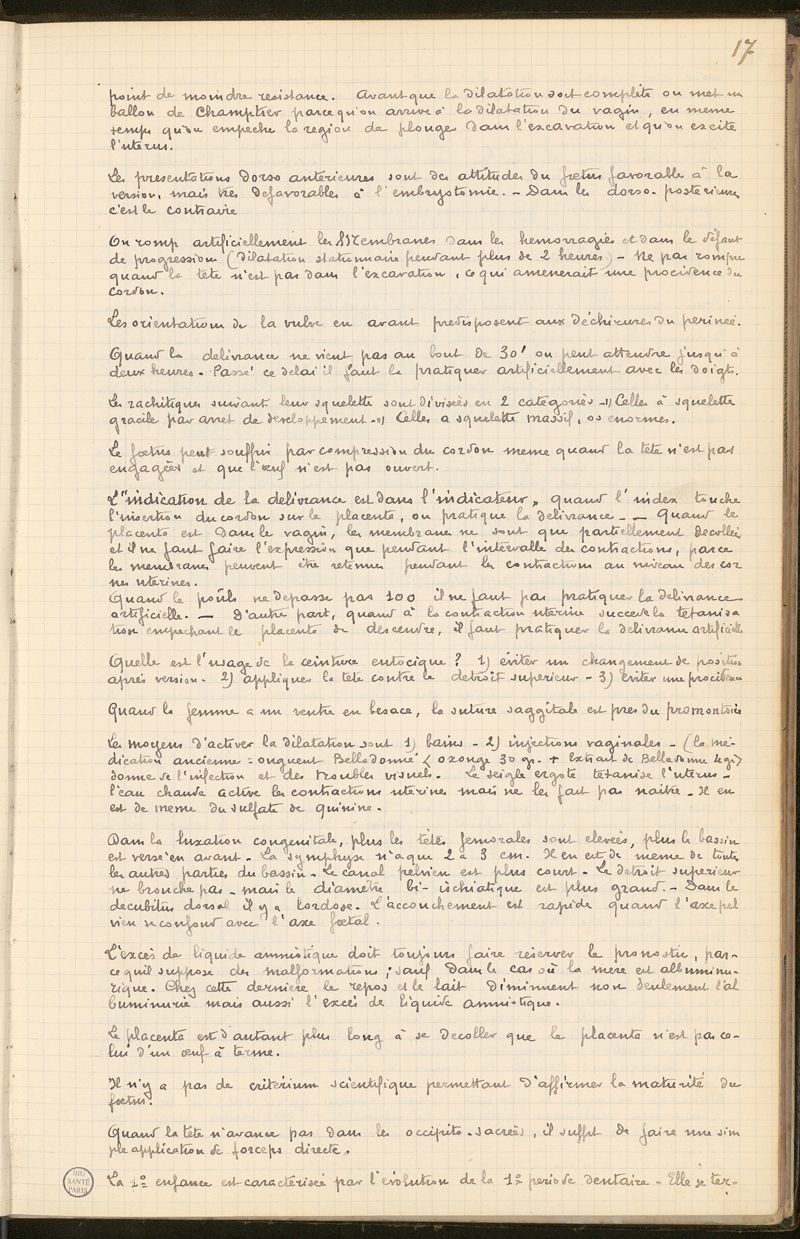 17
point de moindre resistance. Avant que la dilatation soit complète on met un
ballon de Champtier parce qu'on arrive à la dilatation du vagin, en meme
temps qu'on empeche la region de plonger dans l'excavation et qu'on excite
l'uterus.
Les presentations dorso anterieures sont des attitudes du foetus favorable à la
version, mais tres defavorables à l'embryotomie. - Dans les dorso-posterieures
c'est le contraire
On romp artificiellement les Membranes dans les hemorragies et dans le défaut
de progression (dilatation stationnaire pendant plus de 2 heures) - Ne pas rompre
quand la tête n'est pas dans l'excavation, ce qui amenerait une procidence du
cordon.
Les orientations de la vulve en avant predisposent aux déchirures du perineé.
Quand la delivrance ne vient pas au bout de 30' on peut attendre jusqu'à
deux heures. Passé ce delai il faut la pratiquer artificiellement avec les doigts.
Les rachitiques suivant leur squelette sont diviseés en 2 categories - 1) Celles à squelette
gracile par arret de developpement - 2) Celles a squelette massif, os enormes.
Le foetus peut souffrir par compression du cordon meme quand la tête n'est pas
engageés et que l'oeuf n'est pas ouvert.
L'"indication de la delivrance est dans l'indicateur" quand l'index touche
l'insertion du cordon sur le placenta, on pratique la delivrance - — Quand le
placenta est dans le vagin, les membranes ne sont que partiellement decolleés
et il ne faut faire l'expression que pendant l'intervalle des contractions, parce
les membranes peuvent être retenues pendant les contractions au niveau des cor
nes uterines.
Quand le poûls ne depasse pas 100 il ne faut pas pratiquer la delivrance
artificielle. — D'autre part, quand à la contraction uterine succede la tetanisa
tion empechant le placenta de descendre, il faut pratiquer la delivrance artificielle
Quelle est l'usage de la ceinture eutocique ? 1) éviter un changement de position
après version - 2) appliquer la tete contre le detroit superieur - 3) éviter une procidence
Quand la femme a un ventre en besace, la suture saggitale est pres du promontoire
Les moyens d'activer la dilatation sont 1) bains - 2) injections vaginales - (la mé-
dication ancienne = onguent Belladonné < axonge 30 gr. + Extrait de Belladonne 4 gr>
donne de l'infection et des troubles visuels. Le seigle ergoté tetanise l'uterus -
l'eau chaude active les contractions uterines mais ne les fait pas naitre. Il en
est de meme du sulfate de quinine.
Dans la luxation congenitale, plus les têtes femorales sont eleveés, plus le bassin
est versé en avant - La symphyse n'a que 2 à 3 cm. Il en est de meme de toutes
les autres parties du bassin - Le canal pelvien est plus court - Le detroit superieur
ne bronche pas - mais le diamétre bi-ischiatique est plus grand. - Dans le
decubitus dorsal il y a lordose. L'accouchement est rapide quand l'axe pel
vien se confond avec l'axe foetal.
L'excès de liquide amniotique doit toujours faire reserver le pronostic, par-
ce qu'il suppose des malformations ; sauf dans le cas où la mere est albuminu-
rique. Chez cette derniere le repos et le lait diminuent non seulement l'al
buminurie mais aussi l'excès de liquide amniotique.
Le placenta est d'autant plus long à se decoller que le placenta n'est pas ce-
lui d'un oeuf à terme.
Il n'y a pas de critérium scientifique permettant d'affirmer la maturité du
foetus.
Quand la tete n'avance pas dans les occipito-sacreés, il suffit de faire une sim
ple application de forceps directe.
La 1re enfance est caractériseé par l'évolution de la 1re periode dentaire - Elle se ter-
BIU
SANTÉ
PARIS